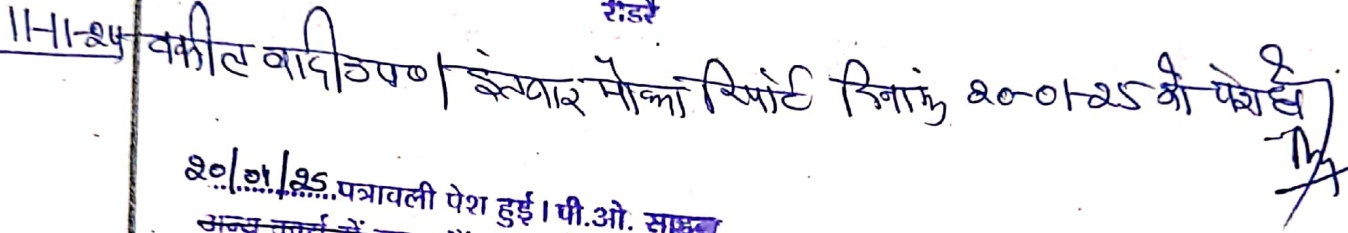 रीडर
11-11-24 वकील वादी उप०। इंतजार मौका रिपोर्ट दिनांक 20-01-25 को पेश हो
20/01/25 पत्रावली पेश हुई। पी.ओ. साहब
अन्य कार्य में